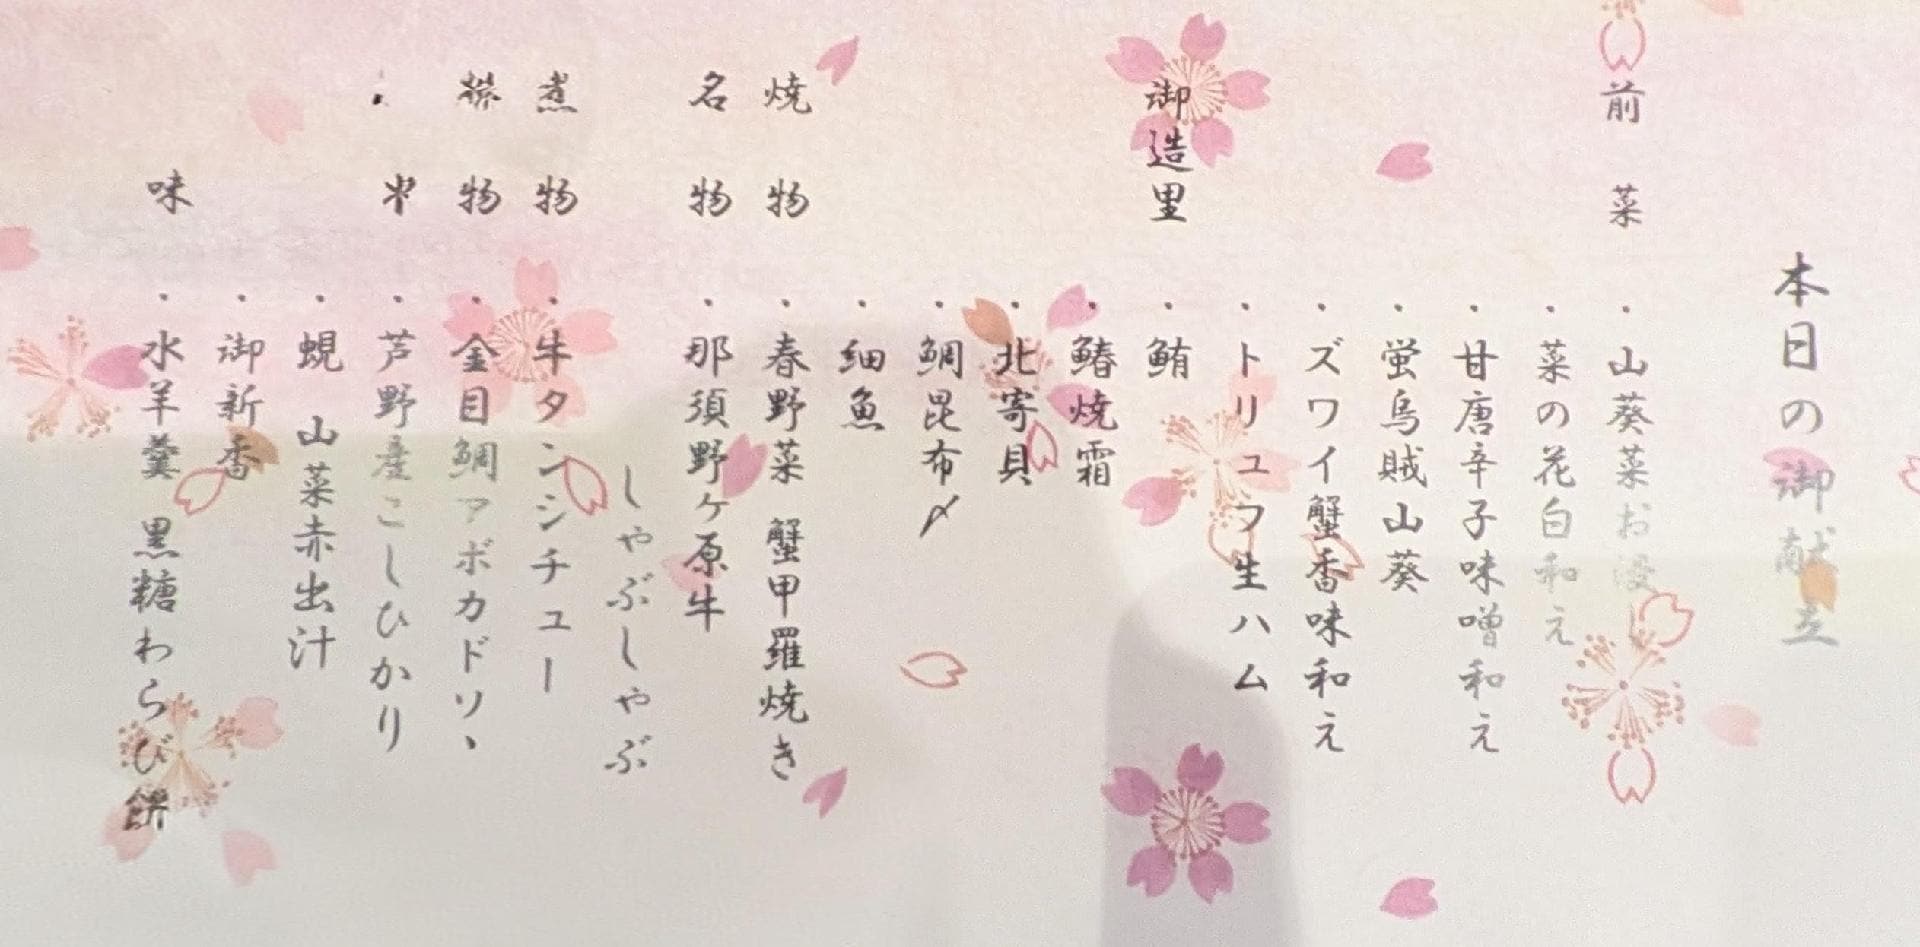 本日の御献立
前菜
・山葵菜お浸し
・菜の花白和え
・甘唐辛子味噌和え
・蛍烏賊山葵
・ズワイ蟹香味和え
・トリュフ生ハム
御造里
・鮪
・鰆焼霜
・北寄貝
・鯛昆布〆
・細魚
焼物
・春野菜 蟹甲羅焼き
名物
・那須野ヶ原牛
しゃぶしゃぶ
煮物
・牛タンシチュー
物
・金目鯛アボカドソ、
・芦野産こしひかり
・蜆 山菜赤出汁
・御新香
味
・水羊羹 黒糖わらび餅